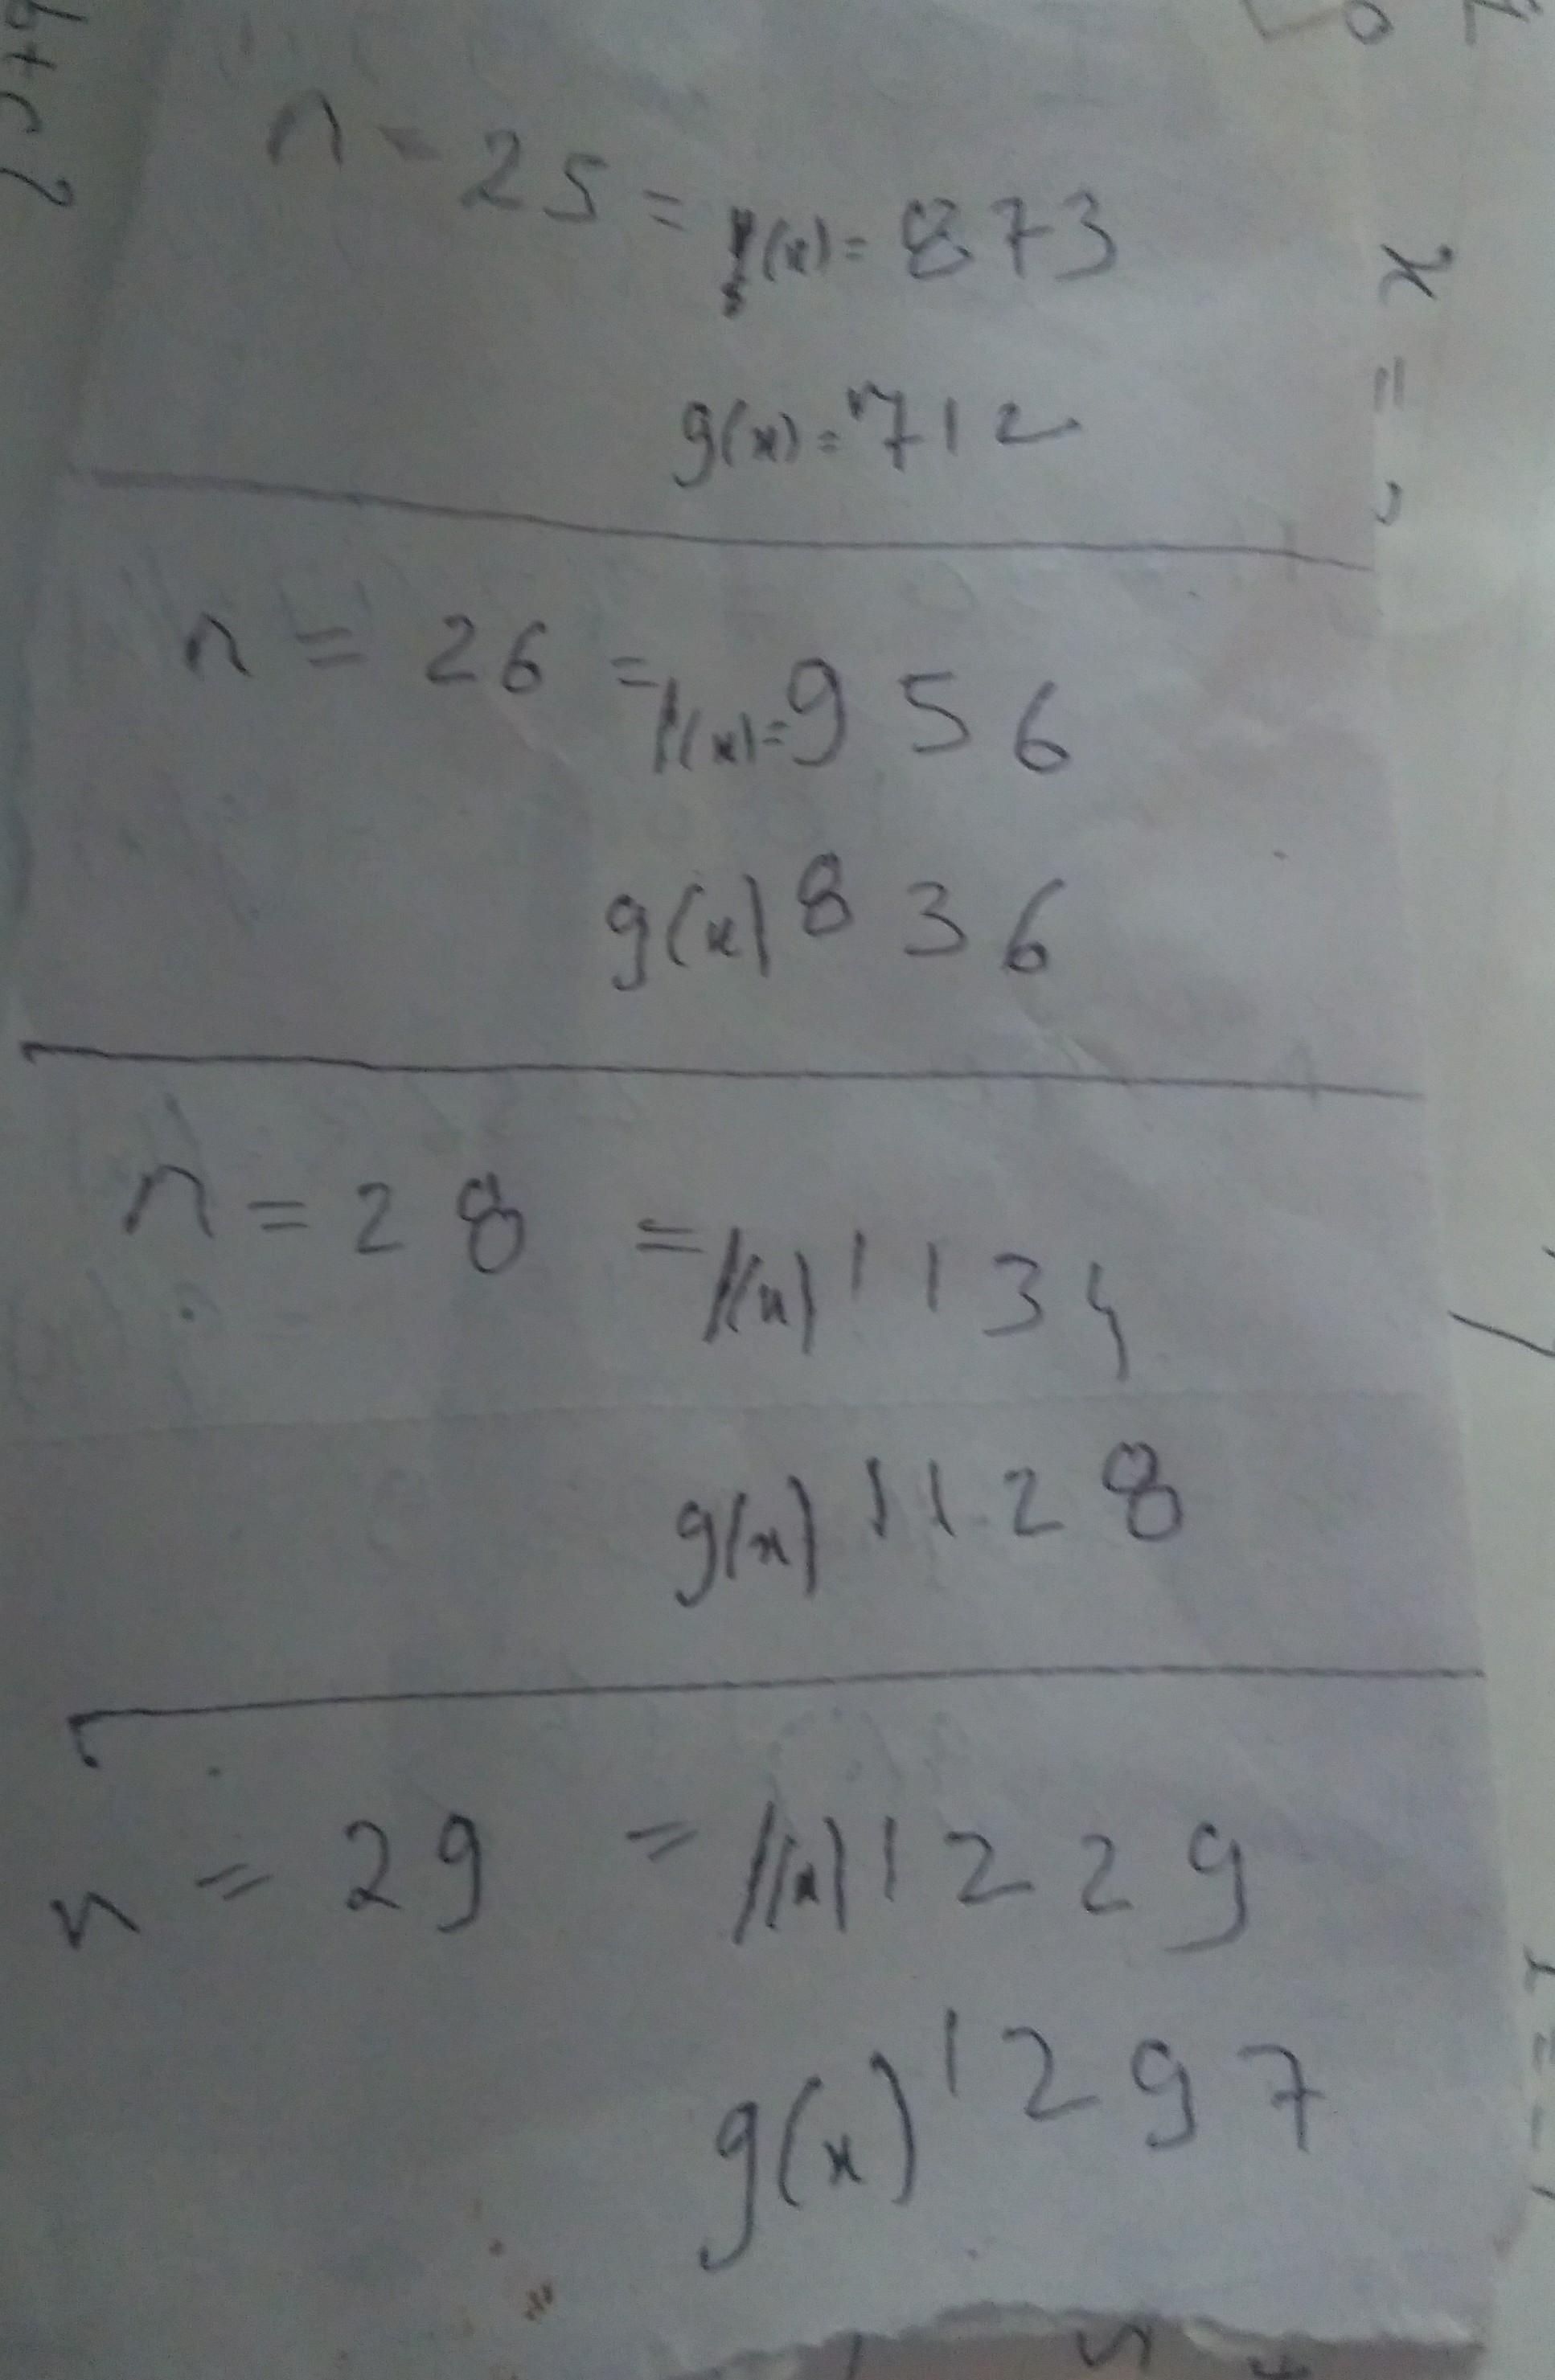 n = 25 = f(x) = 873
g(x) = 712
n = 26 = f(x) = 956
g(x) 836
n = 28 = f(x) 1134
g(x) 1128
n = 29 = f(x) 1229
g(x) 1297
x =